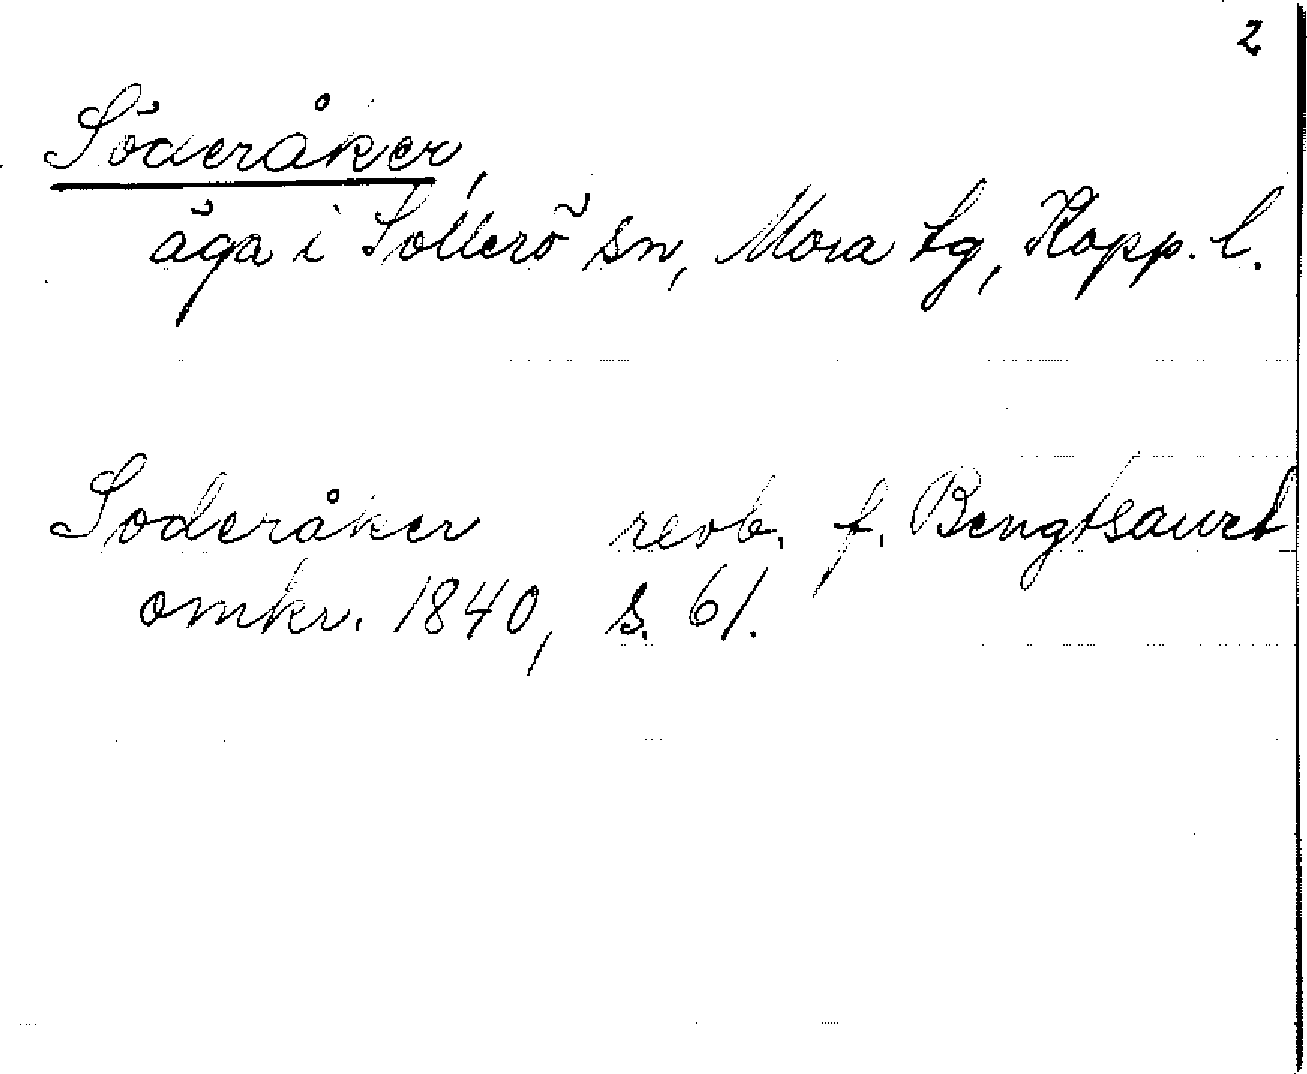 2
Söderåker,
äga i Sollerö sn, Mora tg, Kopp. l.
Soderåker revb. f. Bengtsarvet
omkr. 1840, s. 61.